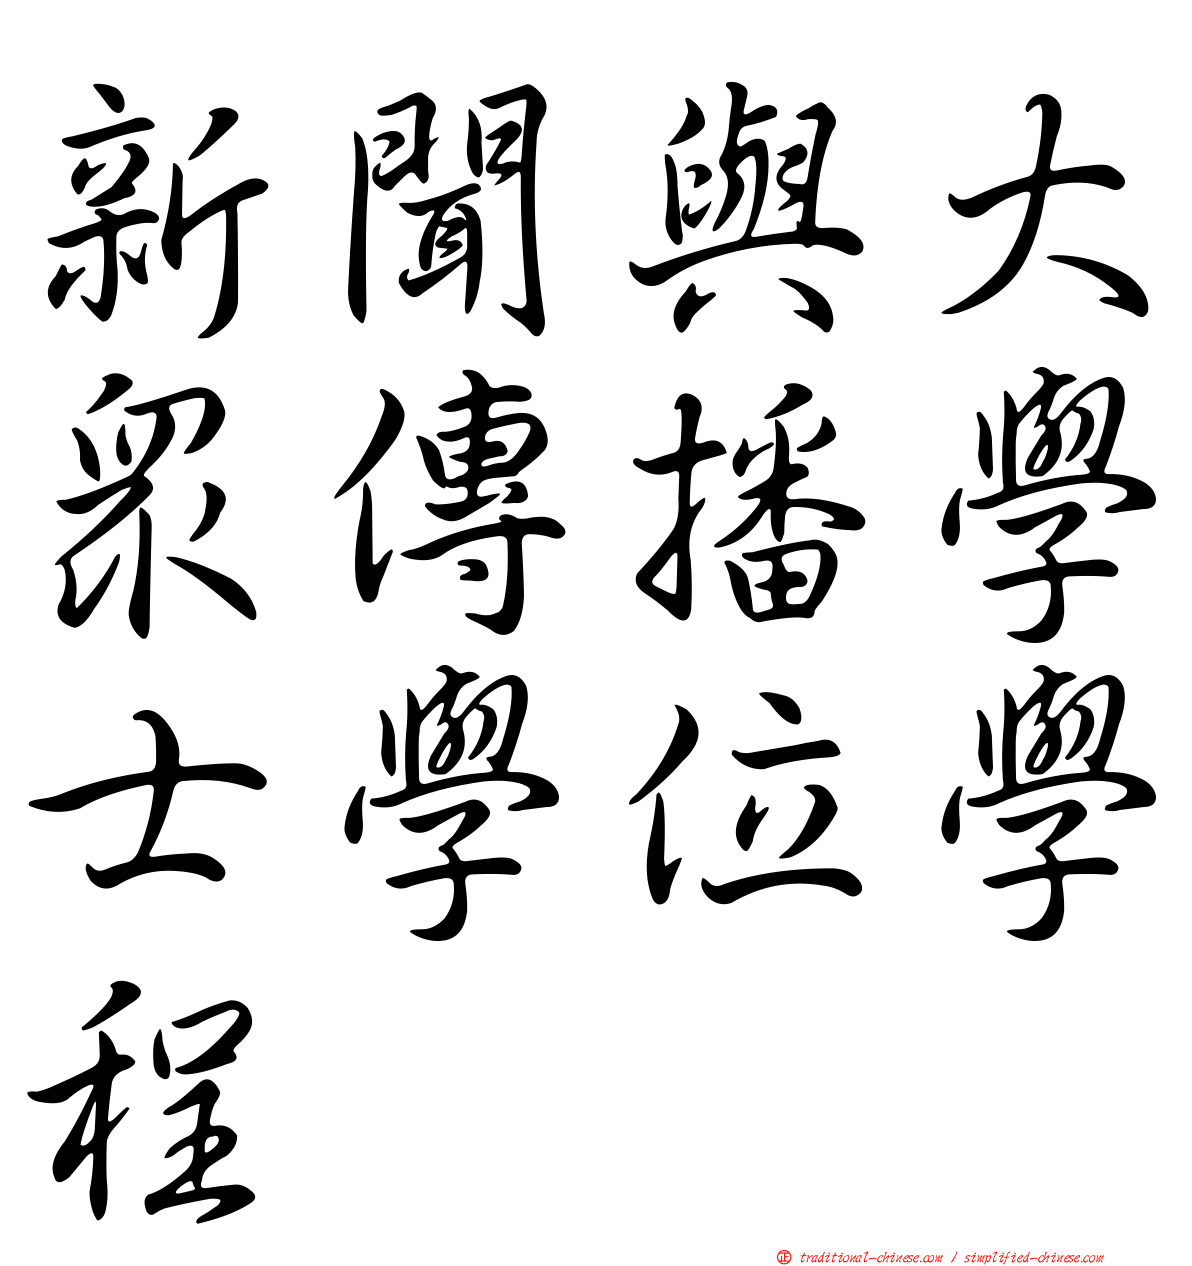 新聞與大
眾傳播學
士學位學
程
㊣ traditional-chinese.com / simplified-chinese.com